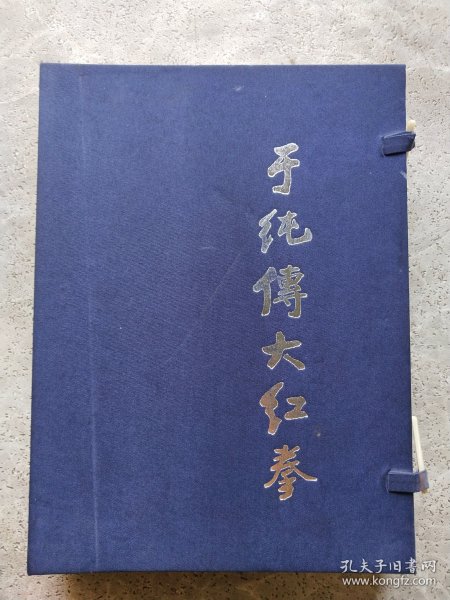 于纯傳大红拳
孔夫子旧书网
www.kongfz.com